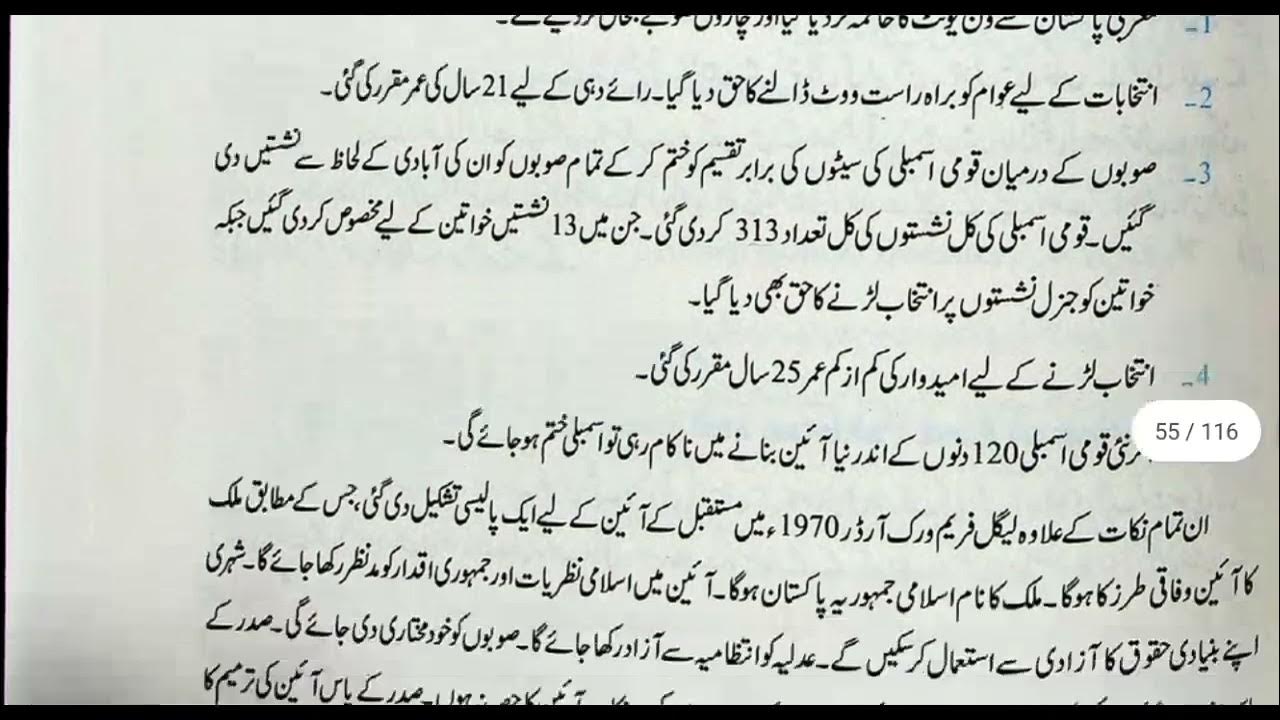 1۔ مغربی پاکستان سے ون یونٹ کا خاتمہ کر دیا گیا اور چاروں صوبے بحال کر دیے گئے۔
2۔ انتخابات کے لیے عوام کو براہ راست ووٹ ڈالنے کا حق دیا گیا۔ رائے دہی کے لیے 21 سال کی عمر مقرر کی گئی۔
3۔ صوبوں کے درمیان قومی اسمبلی کی سیٹوں کی برابر تقسیم کو ختم کر کے تمام صوبوں کو ان کی آبادی کے لحاظ سے نشستیں دی
گئیں۔ قومی اسمبلی کی کل نشستوں کی کل تعداد 313 کر دی گئی۔ جن میں 13 نشستیں خواتین کے لیے مخصوص کر دی گئیں جبکہ
خواتین کو جنرل نشستوں پر انتخاب لڑنے کا حق بھی دیا گیا۔
4۔ انتخاب لڑنے کے لیے امیدوار کی کم از کم عمر 25 سال مقرر کی گئی۔
55 / 116
نئی قومی اسمبلی 120 دنوں کے اندر نیا آئین بنانے میں ناکام رہی تو اسمبلی ختم ہو جائے گی۔
ان تمام نکات کے علاوہ لیگل فریم ورک آرڈر 1970ء میں مستقبل کے آئین کے لیے ایک پالیسی تشکیل دی گئی، جس کے مطابق ملک
کا آئین وفاقی طرز کا ہوگا۔ ملک کا نام اسلامی جمہوریہ پاکستان ہوگا۔ آئین میں اسلامی نظریات اور جمہوری اقدار کو مدنظر رکھا جائے گا۔ شہری
اپنے بنیادی حقوق کا آزادی سے استعمال کر سکیں گے۔ عدلیہ کو انتظامیہ سے آزاد رکھا جائے گا۔ صوبوں کو خود مختاری دی جائے گی۔ صدر کے
آئین کا حصہ نہ ہوں۔ صدر کے پاس آئین کی ترمیم کا